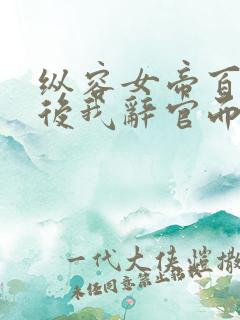 纵容女帝百
後我辭官而
一代大侠恺撒
未经同意禁止转载